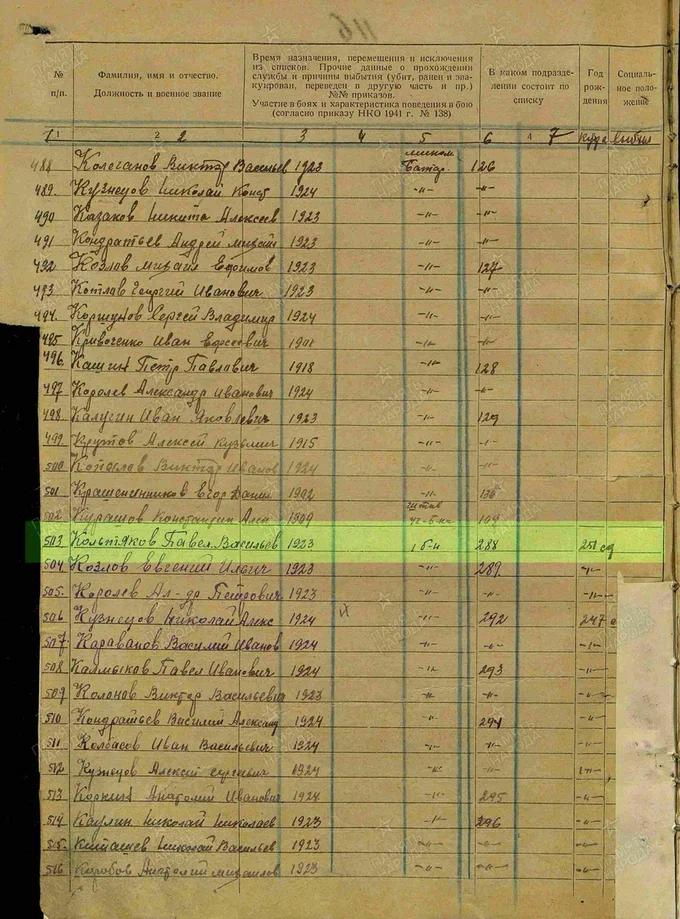 116
№ п/п.
Фамилия, имя и отчество.
Должность и военное звание
Время назначения, перемещения и исключения
из списков. Прочие данные о прохождении
службы и причины выбытия (убит, ранен и эва-
куирован, переведен в другую часть и пр.)
№№ приказов.
Участие в боях и характеристика поведения в бою
(согласно приказу НКО 1941 г. № 138)
В каком подразде-
лении состоит по
списку
Год
рож-
дения
Социаль-
ное поло-
жение
1 2 3 4 5 6 7 куда выбыл
488 Колеганов Виктор Васильев 1923 Батар 126
489. Кузнецов Николай Конст 1924 -"- -"-
490 Казаков Никита Алексеев 1923 -"- -"-
491 Кондратьев Андрей 1923 -"- -"-
492 Козлов Михаил Ефимов 1923 -"- 127
493 Котлов Георгий Иванович 1923 -"- -"-
494. Коршунов Сергей Владимир 1924 -"- -"-
495 Кривоченко Иван 1901 -"- -"-
496. Петр Павлович 1918 -"- 128
497 Королев Александр Иванович 1924 -"- -"-
498. Калугин Иван Яковлевич 1923 -"- 129
499 Крутов Алексей Кузьмич 1915 -"- -"-
500 Виктор Иванов 1924 -"- -"-
501 Крашенинников Егор Данил 1902 -"- 130
502 Курашов Константин Алек 1909 109
503 Кольтяков Павел Васильев 1923 1 б-н 288 251 сд
504 Козлов Евгений Ильич 1923 -"- 289. -"-
505. Королев Ал-др Петрович 1923 -"- -"- -"-
506 Кузнецов Николай Алекс 1924 -"- 292 247
507 Караванов Василий Иванов 1924 -"- -"- -"-
508 Калмыков Павел Иванович 1924 -"- 293 -"-
509 Виктор Васильевич 1923 -"- -"- -"-
510 Кондратьев Василий Александ 1924 -"- 294 -"-
511 Колбасов Иван Васильевич 1924 -"- -"- -"-
512 Кузнецов Алексей Сергевич 1924 -"- -"- -"-
513 Анатолий Иванович 1924 -"- 295 -"-
514 Каулин Николай Николаев 1923 -"- 296 -"-
515 Николай Васильев 1923 -"- -"- -"-
516 Коробов Анатолий Михайлов 1923 -"- -"- -"-